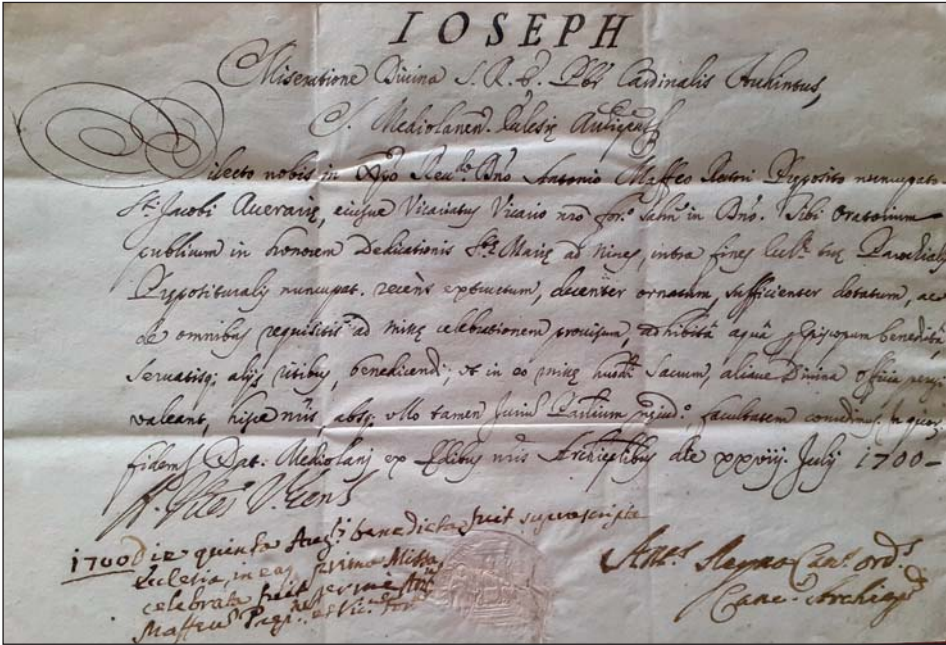 IOSEPH
Miseratione Divina S. R. E. Pbr Cardinalis Archintus,
S. Mediolanen. Ecclesię Archiepus
Dilecto nobis in Xpo Reu.do Dno Antonio Maffeo Rectori Pręposito nuncupato
S.ti Jacobi Auerarię, eiusue Vicariatus Vicario nro for.o Salm in Dno. Tibi Oratorium
publicum in honorem Dedicationis S.tę Marię ad Nives, intra fines tuę Parochialis
Pręposituralis nuncupat. recèns extructum, decenter ornatum, sufficienter dotatum, ac
de omnibus requisitis ad missę celebrationem prouisum, adhibitâ aquâ p Episcopum benedicta,
seruatisq; alijs ritibus, benedicendi; et in eo missę Sacrum, aliaue Diuina officia peragi
valeant, hisce nris, absq; ullo tamen Jurium Parochialium pręiud.o facultatem concedimus. In quor.
fidem Dat. Mediolani ex Ędibus nris Archieplibus die xxviij. Julij 1700
V. Gens
1700 Die quinta Aug.ti benedicta fuit suprascripta
Ecclesia, in eaq. primo Missa
celebrata fuit per me Ant.
Maffeum Prep. et Vic. For.
Ant.s Can.s ord.s
Canc. Archiep.